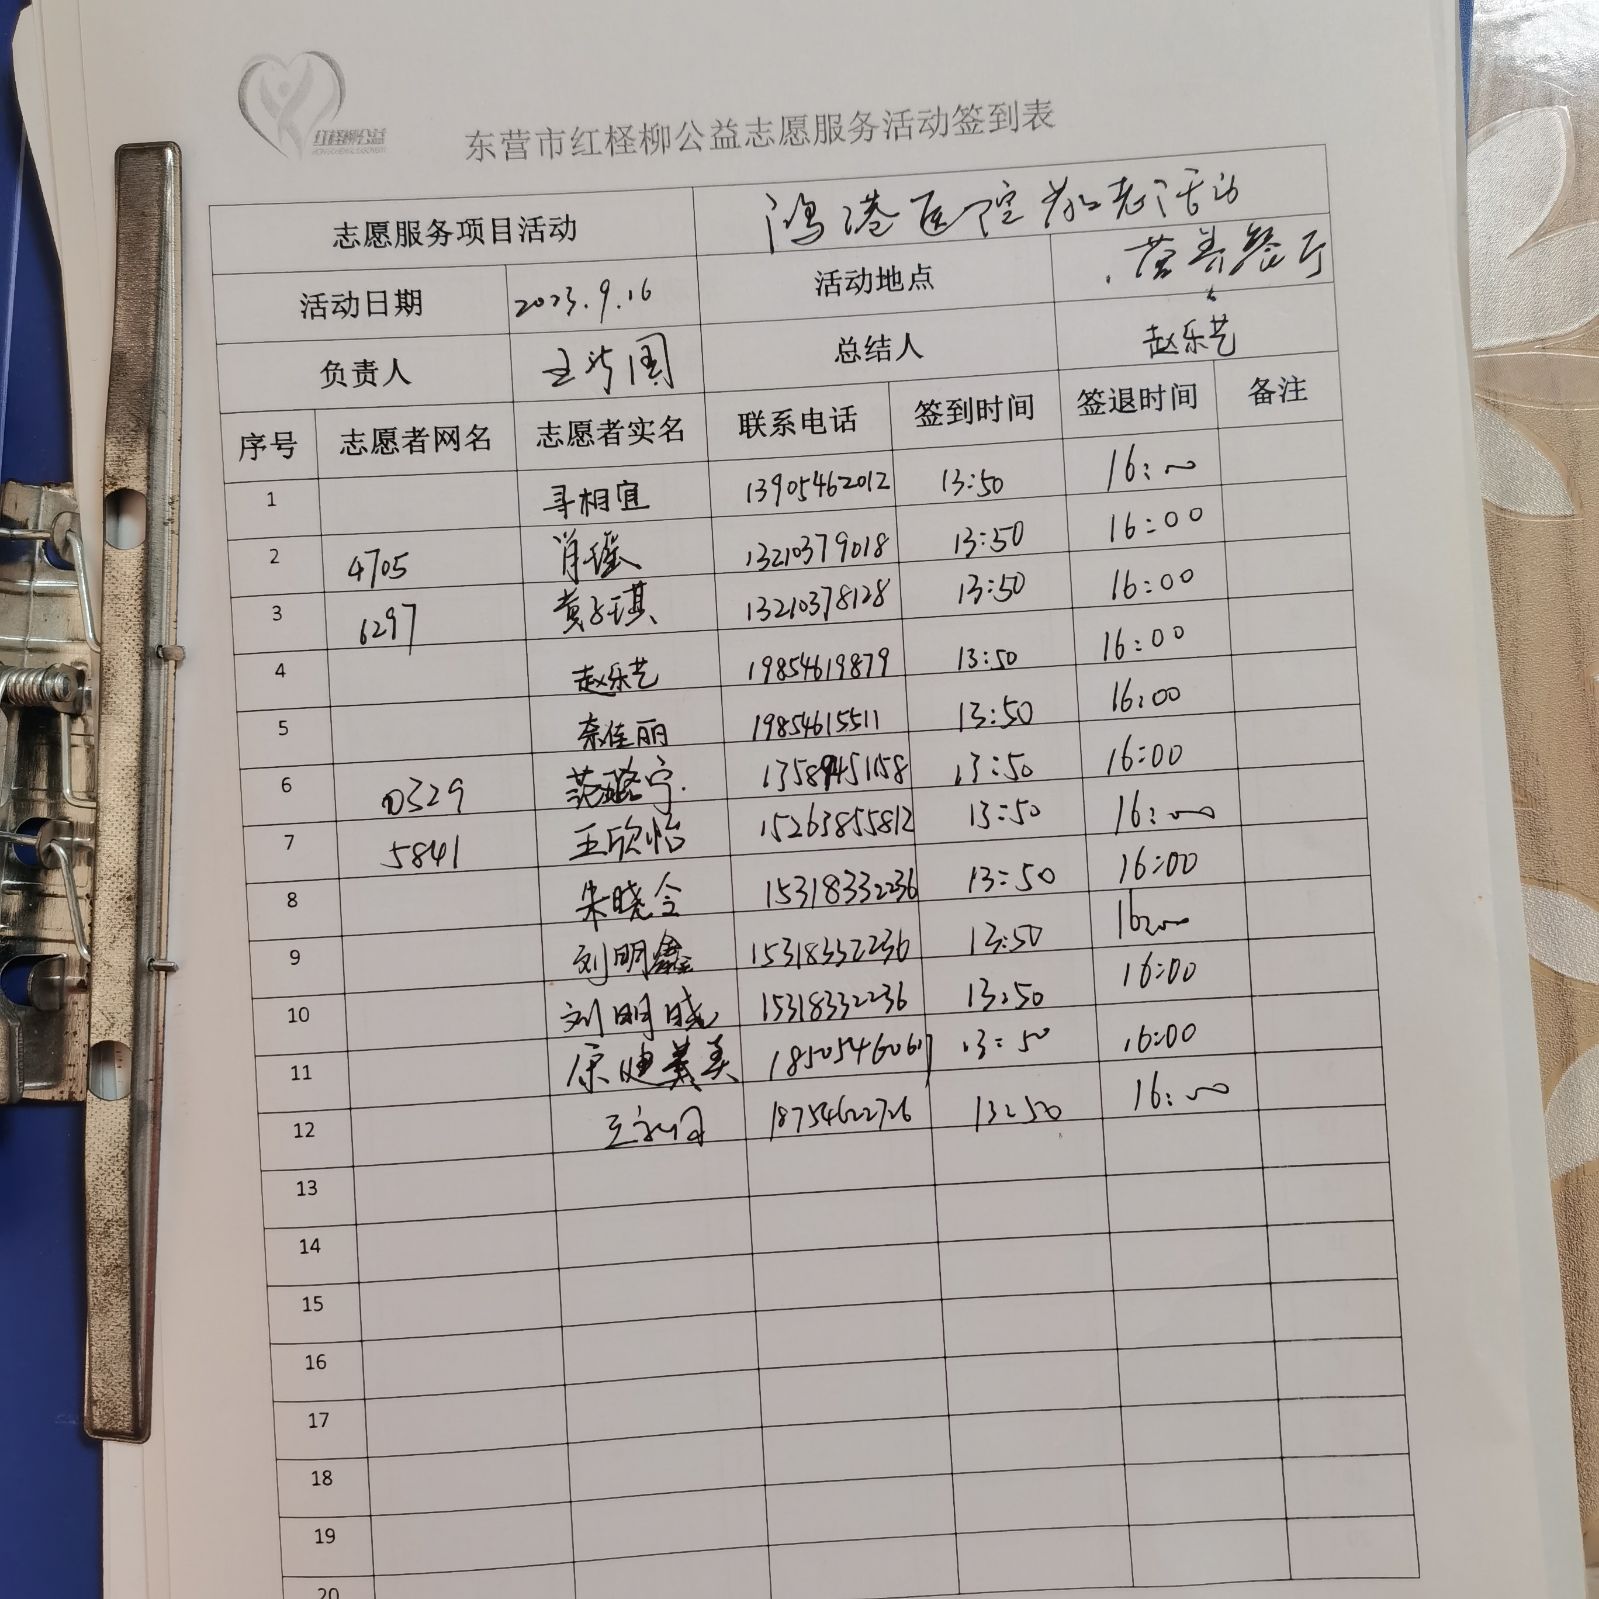 红柽柳公益
东营市红柽柳公益志愿服务活动签到表
志愿服务项目活动 鸿港医院 活动
活动日期 2023.9.16 活动地点 营养餐厅
负责人 总结人 赵乐艺
序号 志愿者网名 志愿者实名 联系电话 签到时间 签退时间 备注
1 寻相宜 13905462012 13:50 16:00
2 4705 肖瑶 13210379018 13:50 16:00
3 6297 黄子琪 13210378128 13:50 16:00
4 赵乐艺 19854619879 13:50 16:00
5 佳丽 19854615511 13:50 16:00
6 0329 范璐宁 13:50 16:00
7 5841 王欣怡 15263855812 13:50 16:00
8 朱晓会 15318332236 13:50 16:00
9 刘明鑫 15318332236 13:50 16:00
10 刘明晓 15318332236 13:50 16:00
11 13:50 16:00
12 18754622726 13:50 16:00
13
14
15
16
17
18
19
20